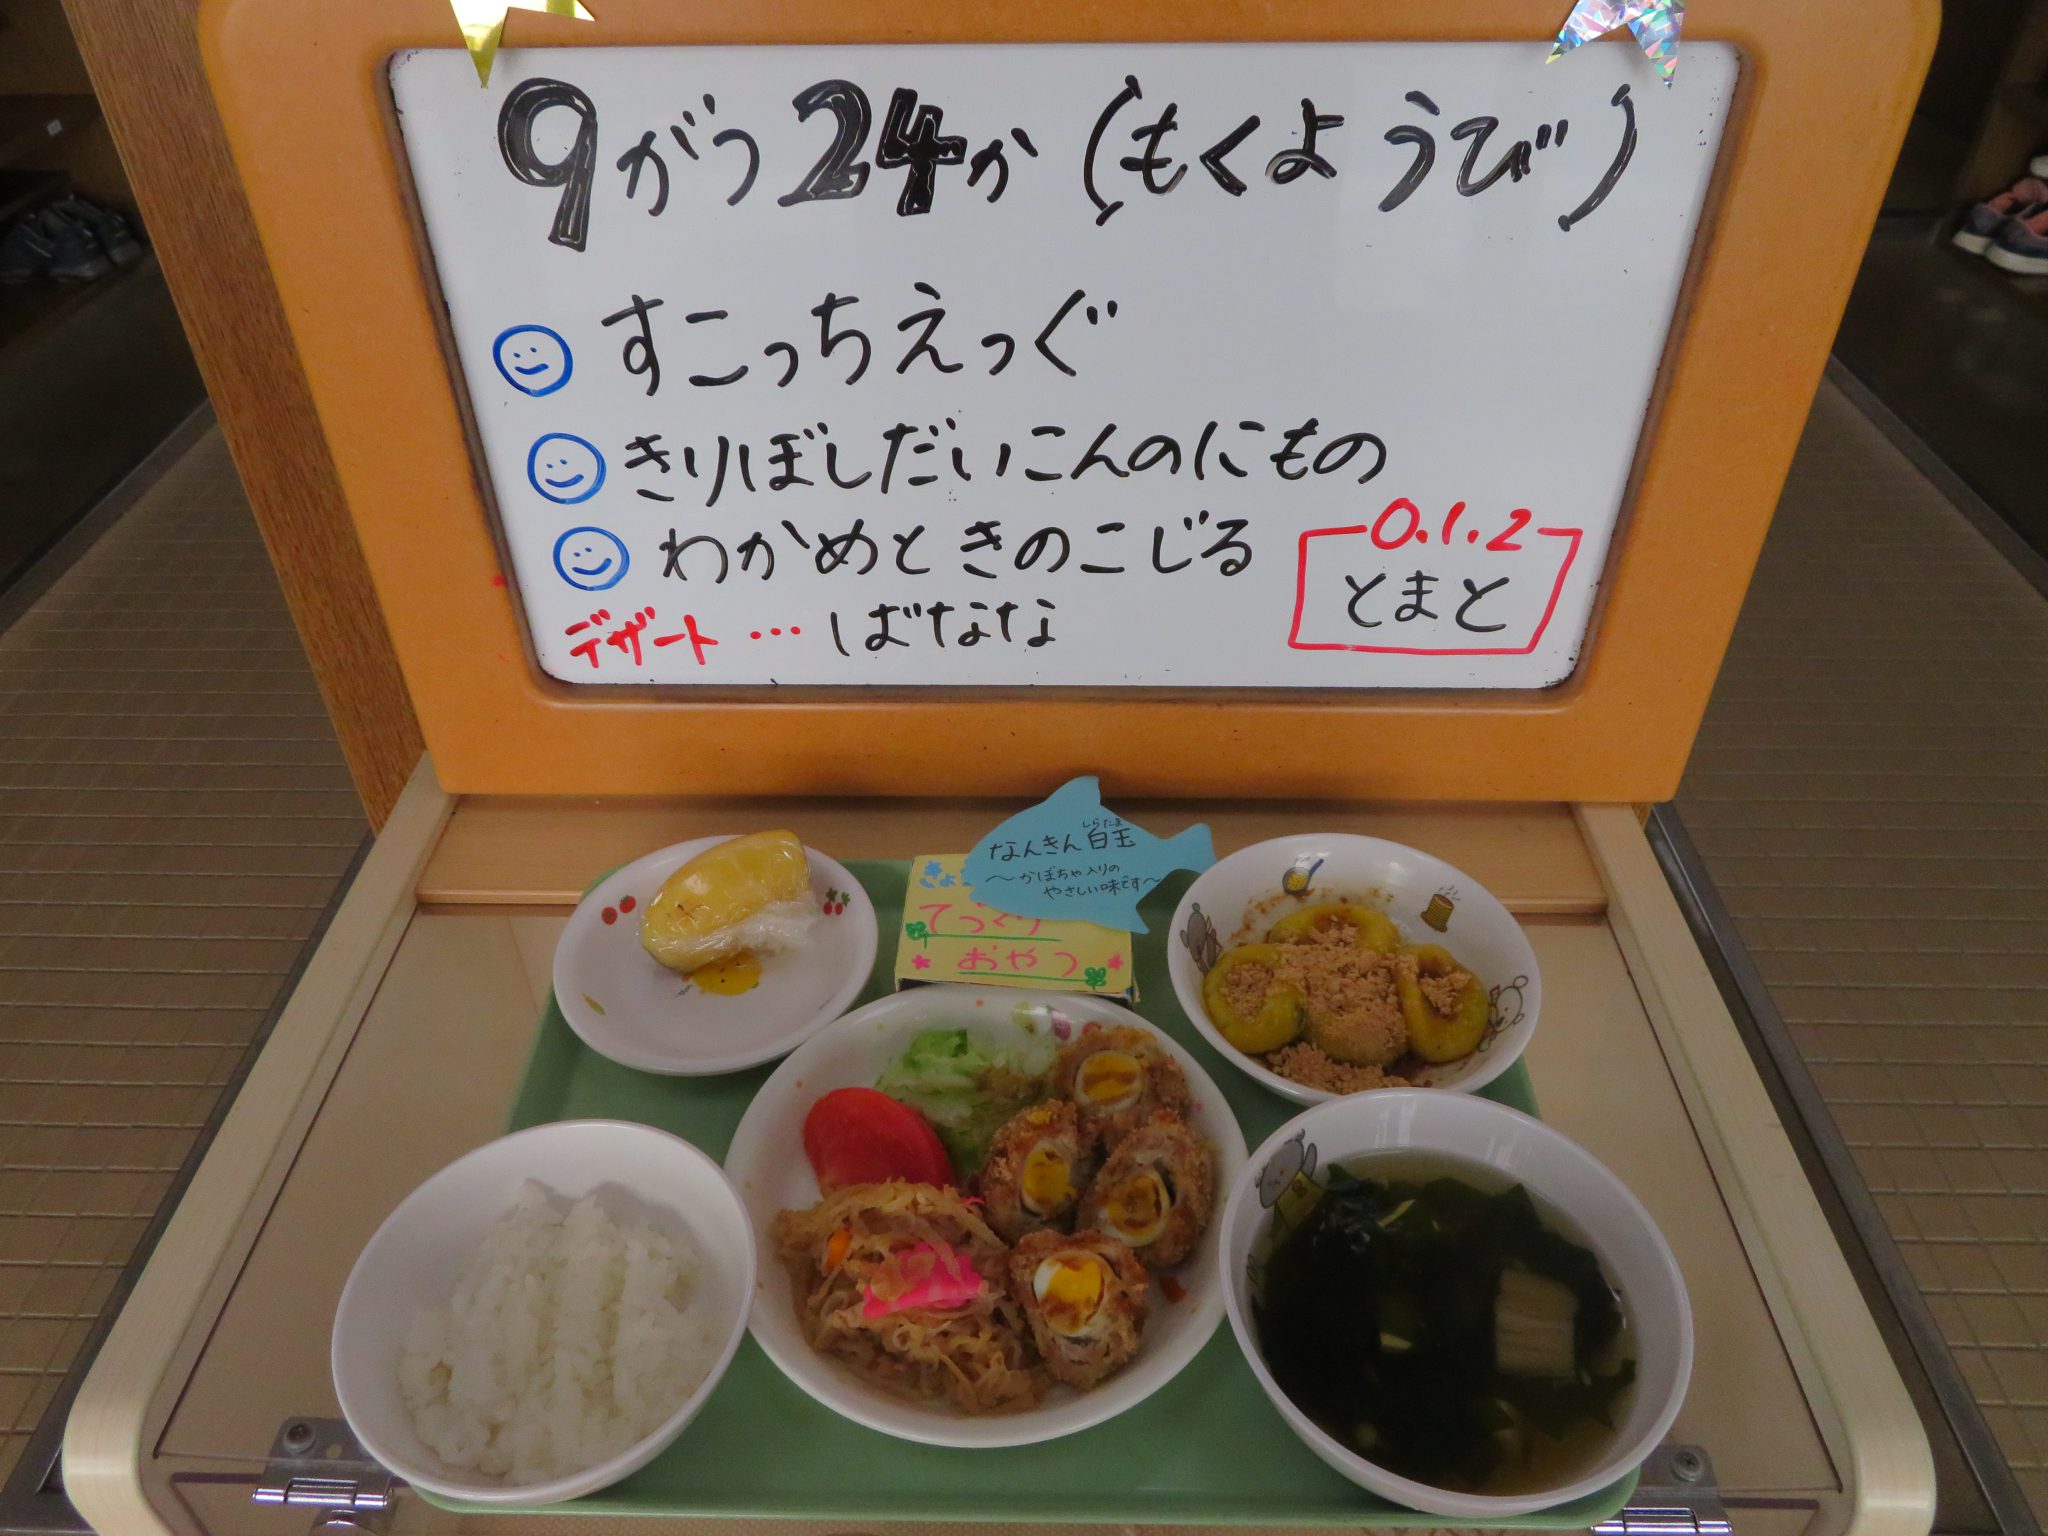 9がつ24か(もくようび)
すこっちえっぐ
きりぼしだいこんのにもの
わかめときのこじる
デザート … ばなな
0.1.2
とまと
なんきん白玉
しらたま
～かぼちゃ入りの
やさしい味です～
てづくり
おやつ